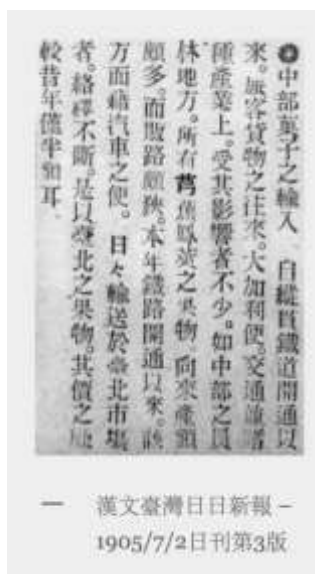 ●中部菓子之輸入 自縱貫鐵道開通以
來。旅客貨物之往來。大加利便。交通
種產業上。受其影響者不少。如中部之員
林地方。所有芎蕉鳳荔之果物。向來產額
頗多。而販路頗狹。本年鐵路開通以來。該
方面藉汽車之便。日々輸送於臺北市場
者。絡繹不斷。是以臺北之果物。其價之
較昔年僅半額耳。
— 漢文臺灣日日新報 –
1905/7/2日刊第3版